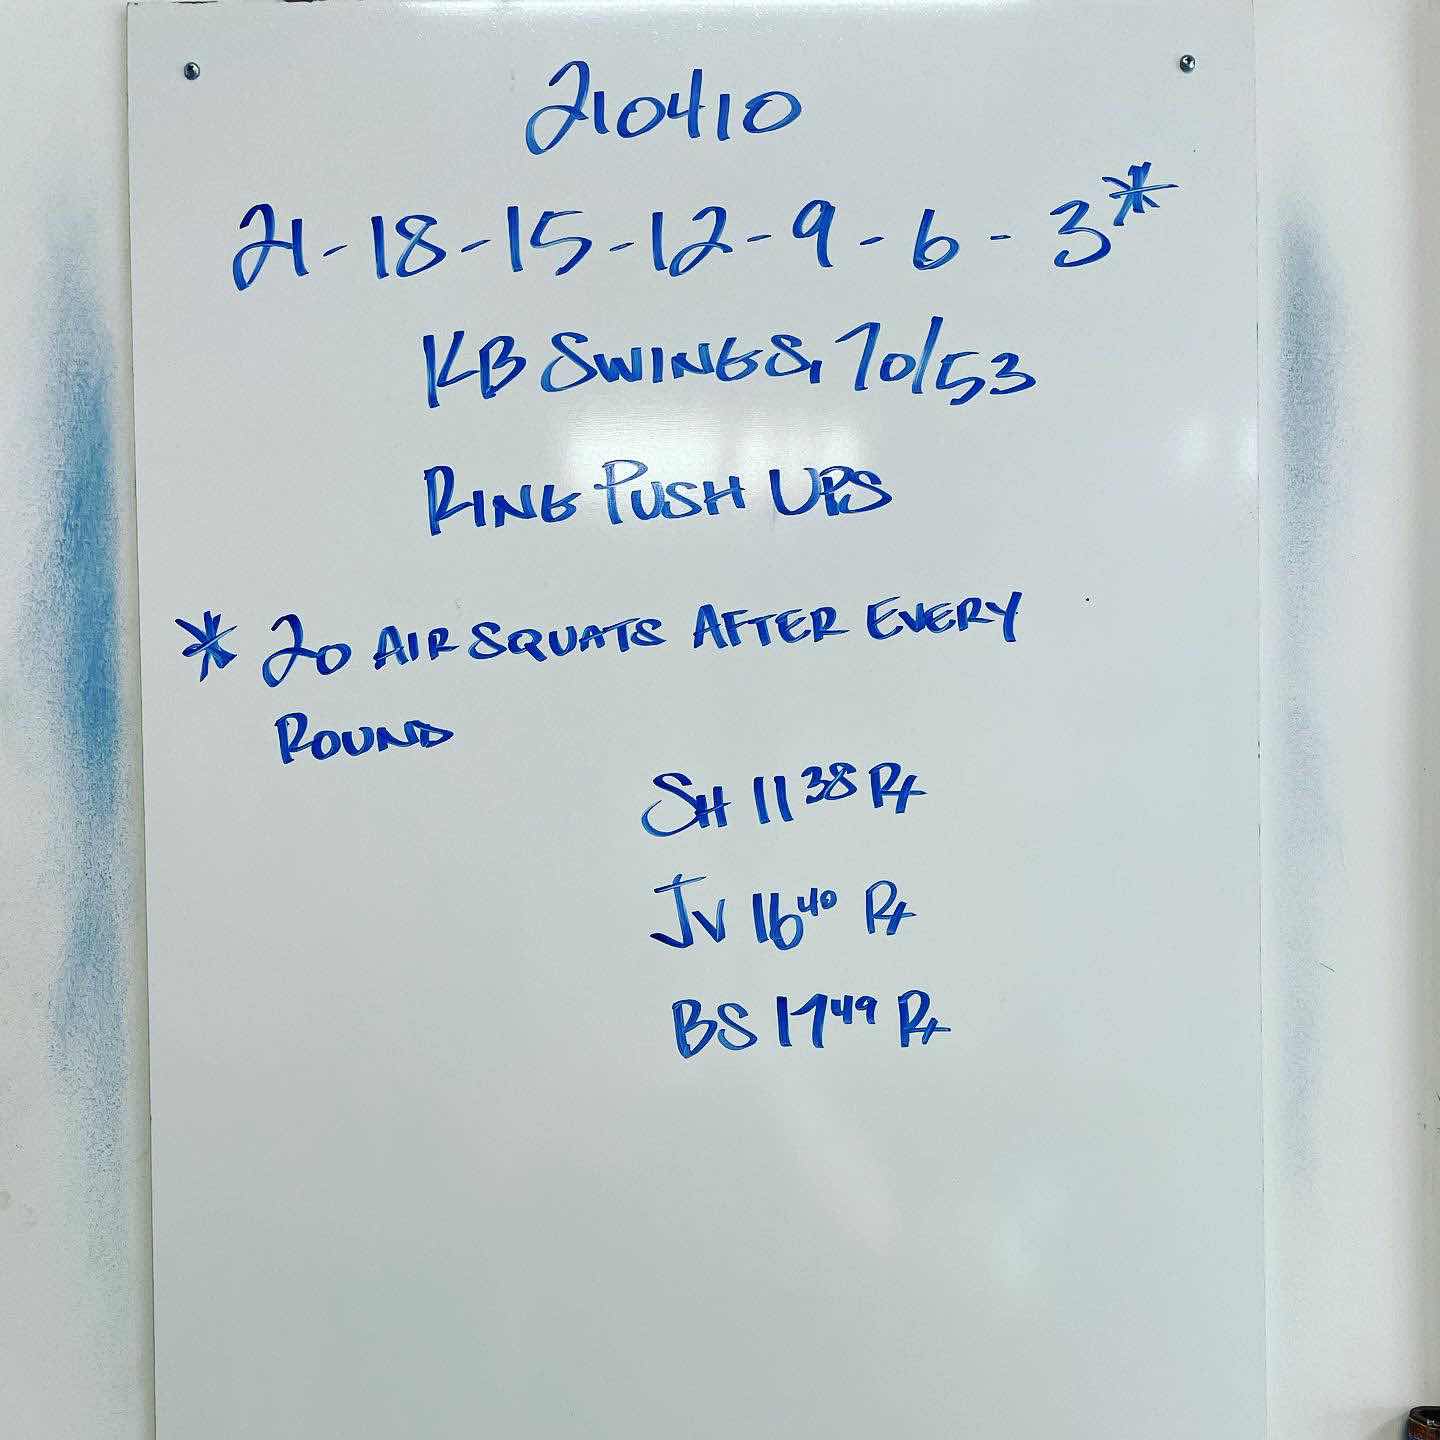 210410
21-18-15-12-9-6-3*
KB SWINGS, 70/53
RING PUSH UPS
* 20 AIR SQUATS AFTER EVERY
ROUND
SH 11 38 Rx
JV 16 40 Rx
BS 17 49 Rx